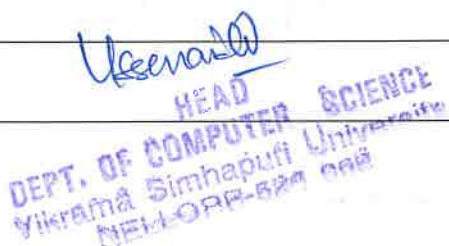 HEAD
DEPT. OF COMPUTER SCIENCE
Vikrama Simhapuri University
NELLORE-524